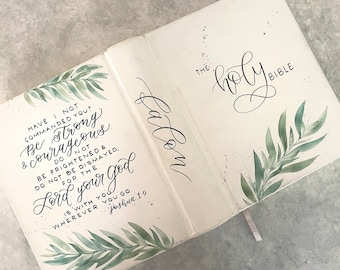 HAVE I NOT
COMMANDED YOU?
Be strong
& courageous
DO NOT
BE FRIGHTENED &
DO NOT BE DISMAYED,
FOR THE
Lord your God
IS WITH YOU
WHEREVER YOU GO
Joshua 1:9
falon
THE
holy
BIBLE